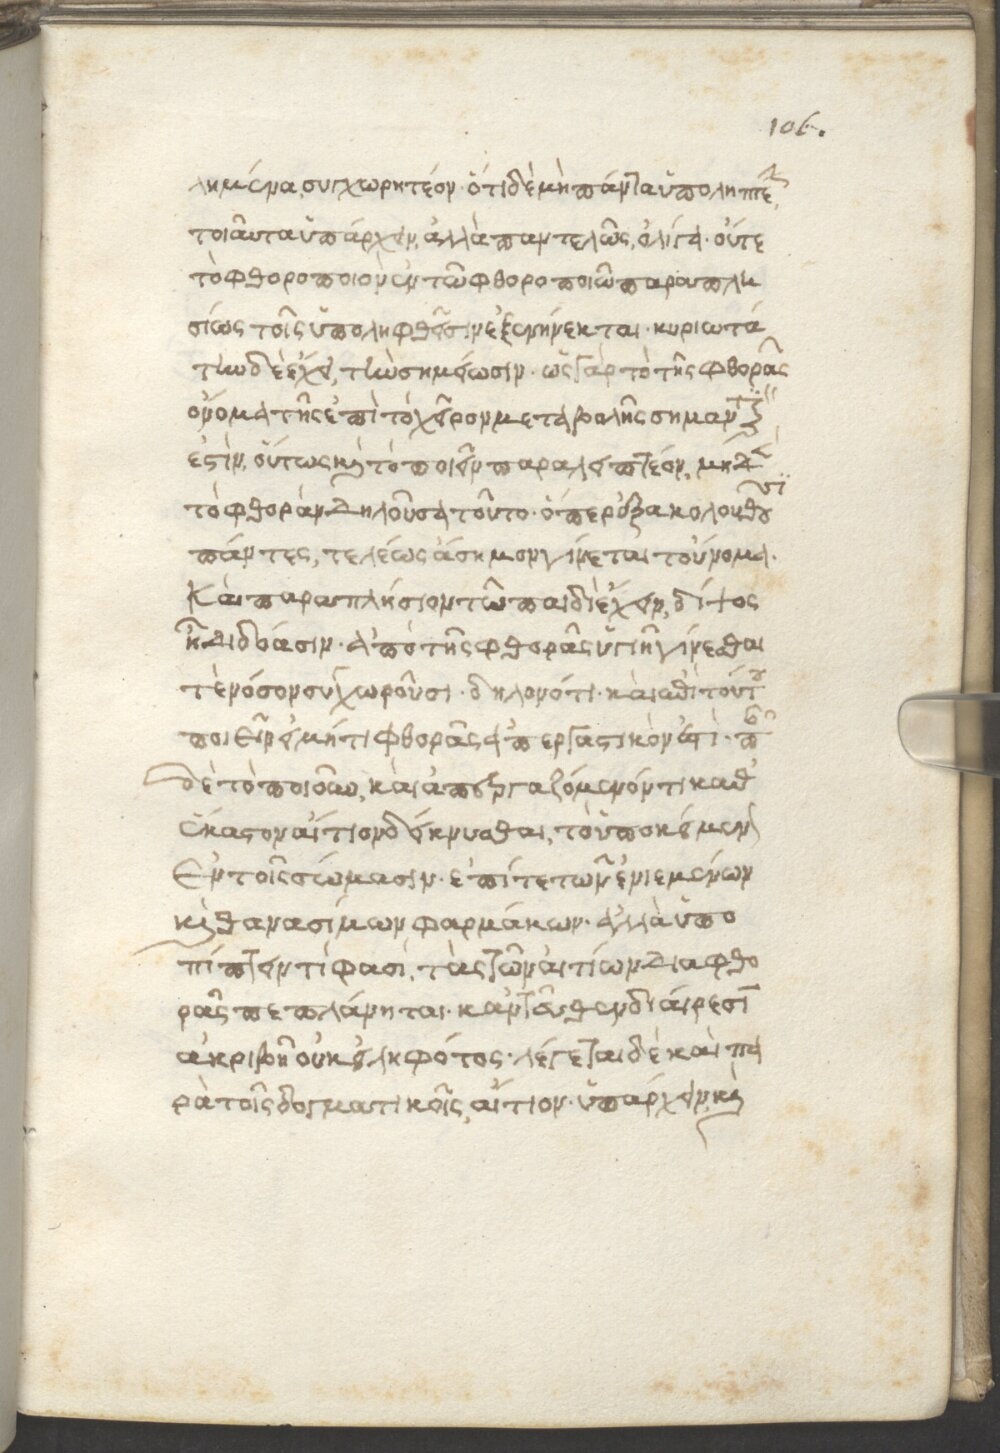 106.
λημένα, συγχωρητέον· ὅτι δὲ μὴ πάντα ὑποληπτέ
τοιαῦτα ὑπάρχειν, ἀλλὰ παντελῶς, ὀλίγα· οὔτε
τὸ φθοροποιὸν ἐν τῶ φθοροποιῶ παραπλη
σίως τοῖς ὑποληφθεῖσιν ἐξενήνεκται· κυριωτά
την δὲ ἔχει, τὴν σημείωσιν· ὡς γὰρ τὸ τῆς φθορᾶς
ὄνομα τῆς ἐπὶ τὸ χεῖρον μεταβολῆς σημαντι
ἐστὶν, οὕτως καὶ τὸ ποιεῖν παραλειπτέον, μηδὲ
τὸ φθορὰν δηλοῦσα τοῦτο· ὅπερ ἐξακολουθοῦσι
πάντες, τελέως ἄσημον γίνεται τοὔνομα·
Καὶ παραπλήσιον τῶ παιδὶ ἔχειν,
διδόασιν· ἀπὸ τῆς φθορᾶς ὑγιῆ γίνεσθαι
τε νόσον συγχωροῦσι· δηλονότι· καὶ τοῦτ
ποιεῖν εἰ μή τι φθορᾶς ἀπεργαστικὸν
δὲ τὸ ποιοῦν, καὶ ἀπεργαζόμενόν τι καθ'
ἕκαστον αἴτιον δείκνυσθαι, τὸ ὑποκείμεν
ἐν τοῖς σώμασιν· ἐπί τε τῶν ἐνιεμένων
καὶ θανασίμων φαρμάκων· ἀλλὰ ὑπο
πίπτειν τί φασὶ, τὰς τῶν αἰτίων διαφθο
ρᾶς πεπλάνηται· κἀνταῦθα διαίρεσιν
ἀκριβῆ οὐκ εἰληφότος· λέγεται δὲ καὶ πα
ρὰ τοῖς δογματικοῖς, αἴτιον· ὑπάρχειν, καὶ